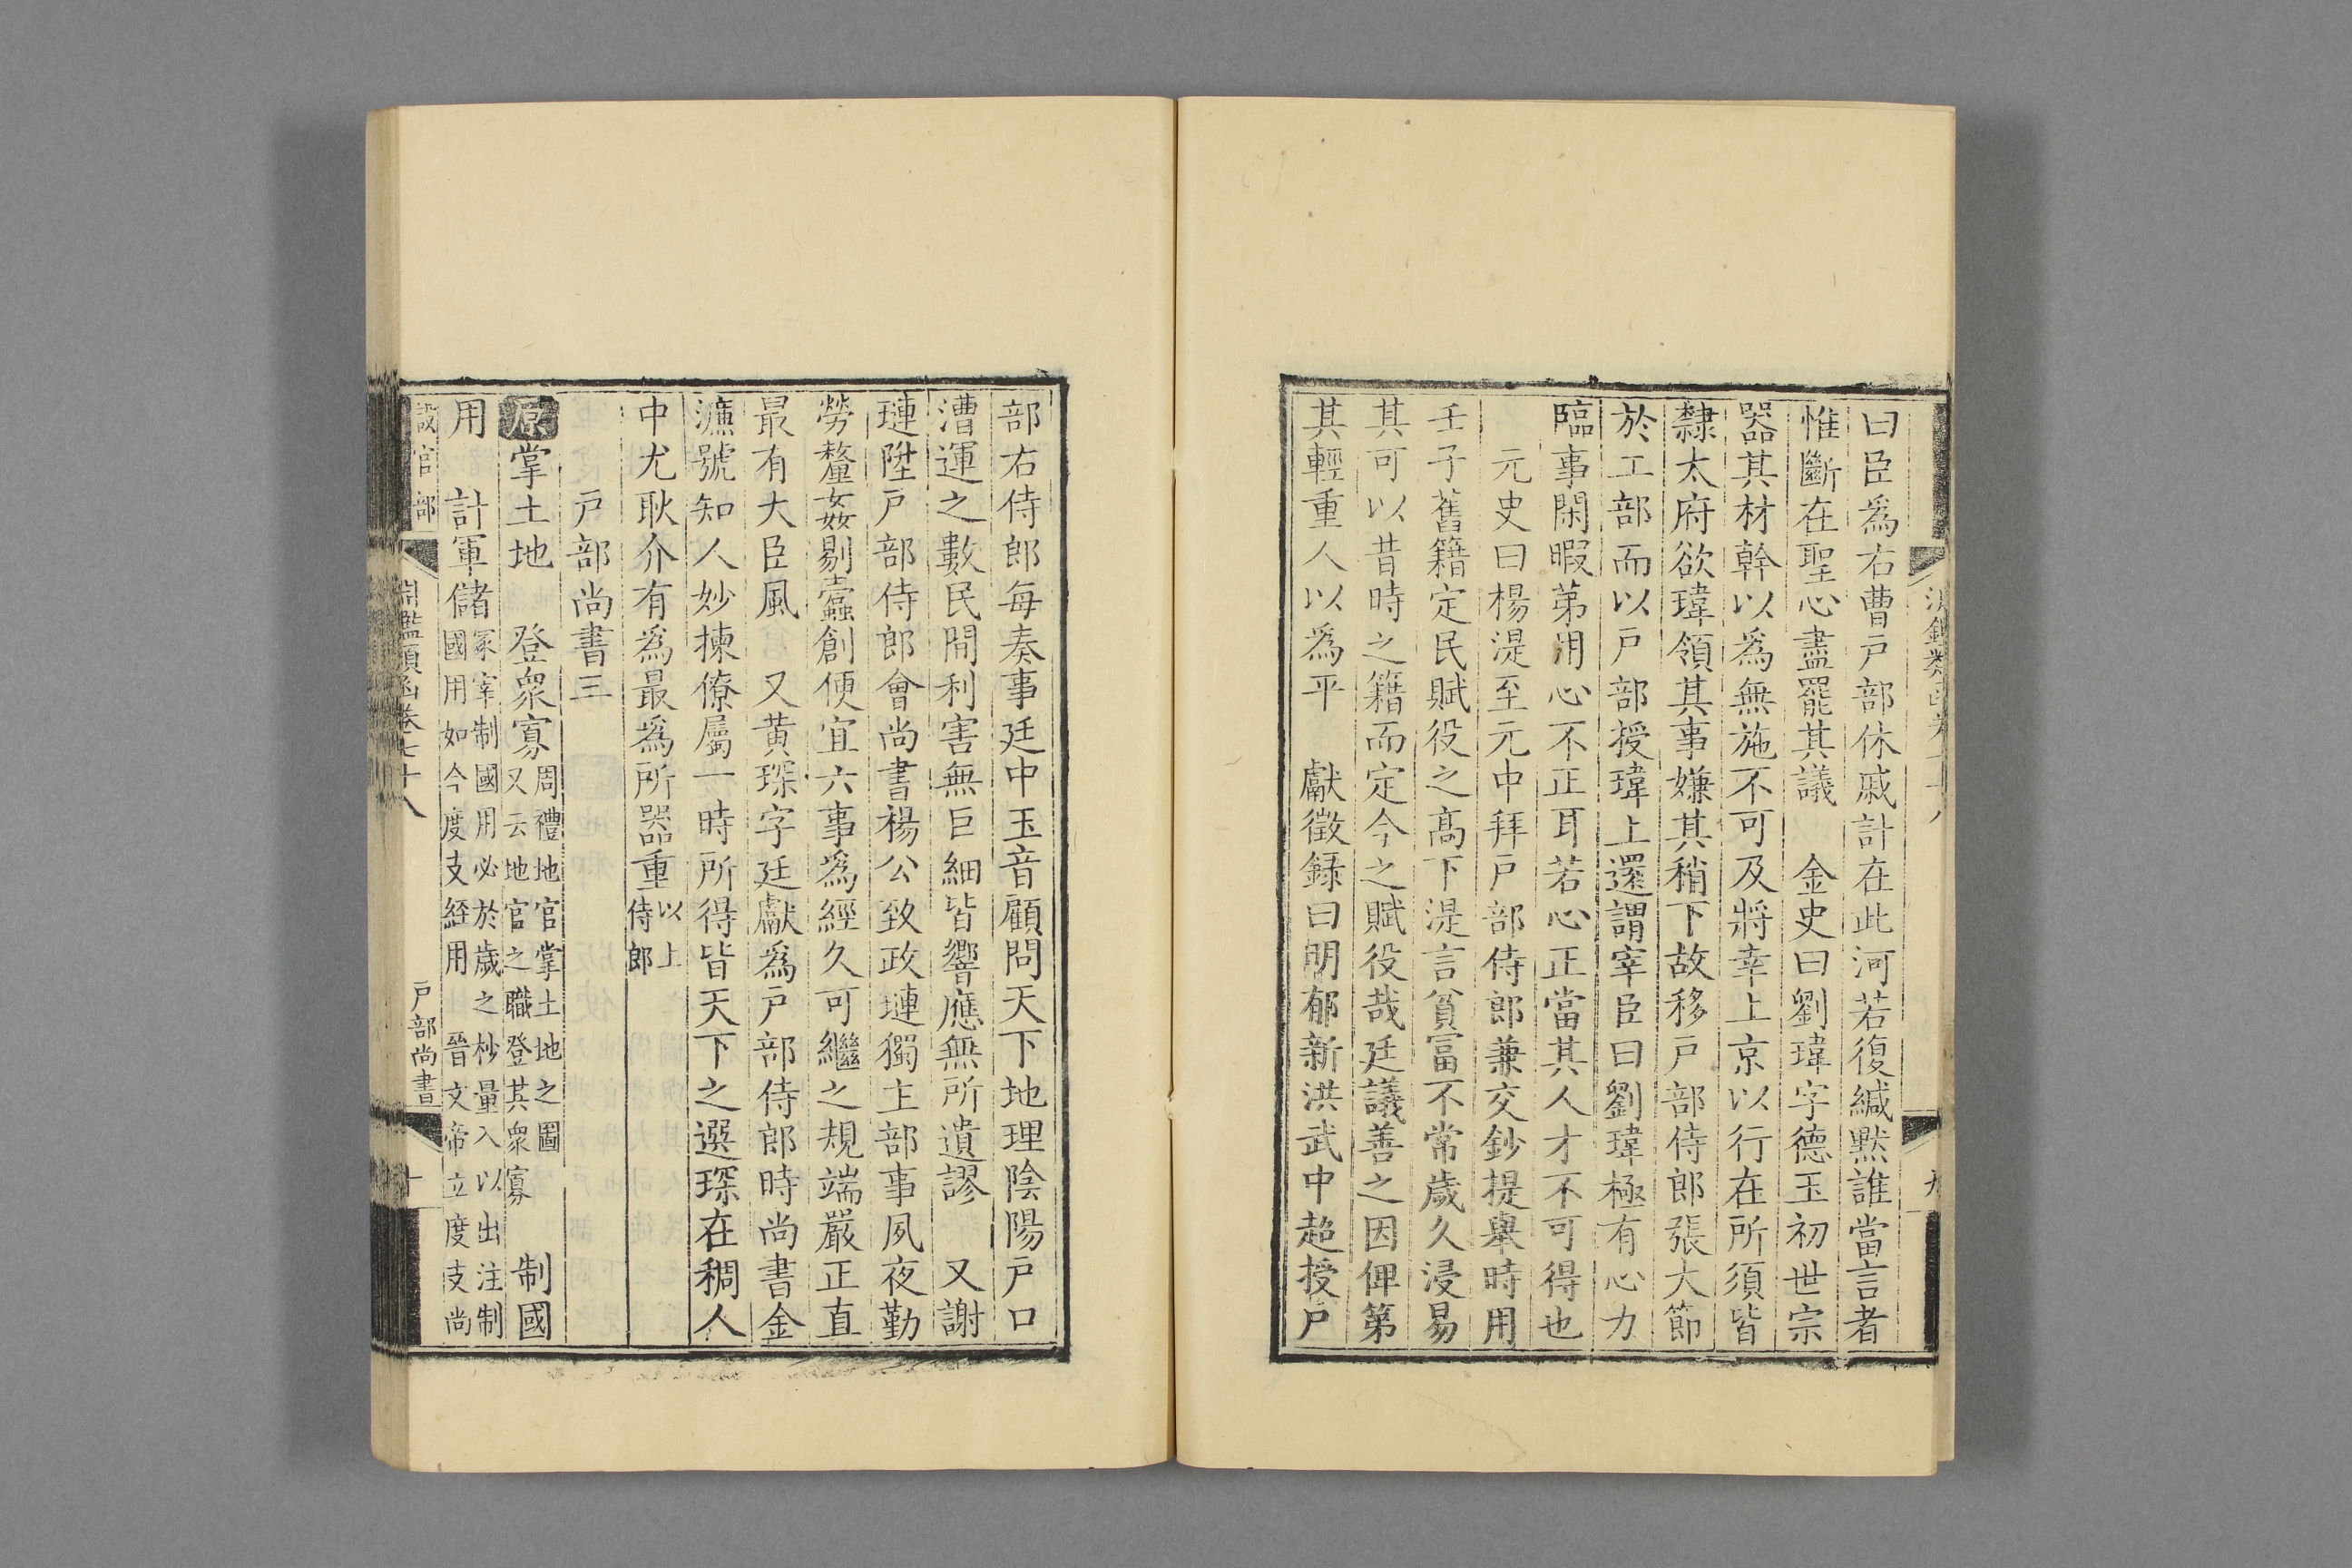 曰臣爲右曹戸部休戚計在此河若復緘默誰當言者
惟斷在聖心盡罷其議 金史曰劉瑋字德玉初世宗
器其材幹以爲無施不可及將幸上京以行在所須皆
隸太府欲瑋領其事嫌其稍下故移戸部侍郎張大節
於工部而以戸部授瑋上還謂宰臣曰劉瑋極有心力
臨事閑暇第用心不正耳若心正當其人才不可得也
元史曰楊湜至元中拜戸部侍郎兼交鈔提舉時用
壬子舊籍定民賦役之高下湜言貧富不常歲久浸易
其可以昔時之籍而定今之賦役哉廷議善之因俾第
其輕重人以爲平 獻徵録曰明郁新洪武中超授戸
部右侍郎每奏事廷中玉音顧問天下地理陰陽戸口
漕運之數民間利害無巨細皆響應無所遺謬 又謝
璉陞戸部侍郎會尚書楊公致政璉獨主部事夙夜勤
勞釐姦剔蠹創便宜六事爲經久可繼之規端嚴正直
最有大臣風 又黄琛字廷獻爲戸部侍郎時尚書金
濂號知人妙揀僚屬一時所得皆天下之選琛在稠人
中尤耿介有爲最爲所器重以上
侍郎
戸部尚書三
原掌土地 登衆寡周禮地官掌土地之圖
又云地官之職登其衆寡 制國
用 計軍儲冢宰制國用必於歲之杪量入以出注制
國用如今度支經用 晉文帝立度支尚
設官部
淵鑑類函卷七十八
戸部尚書
十